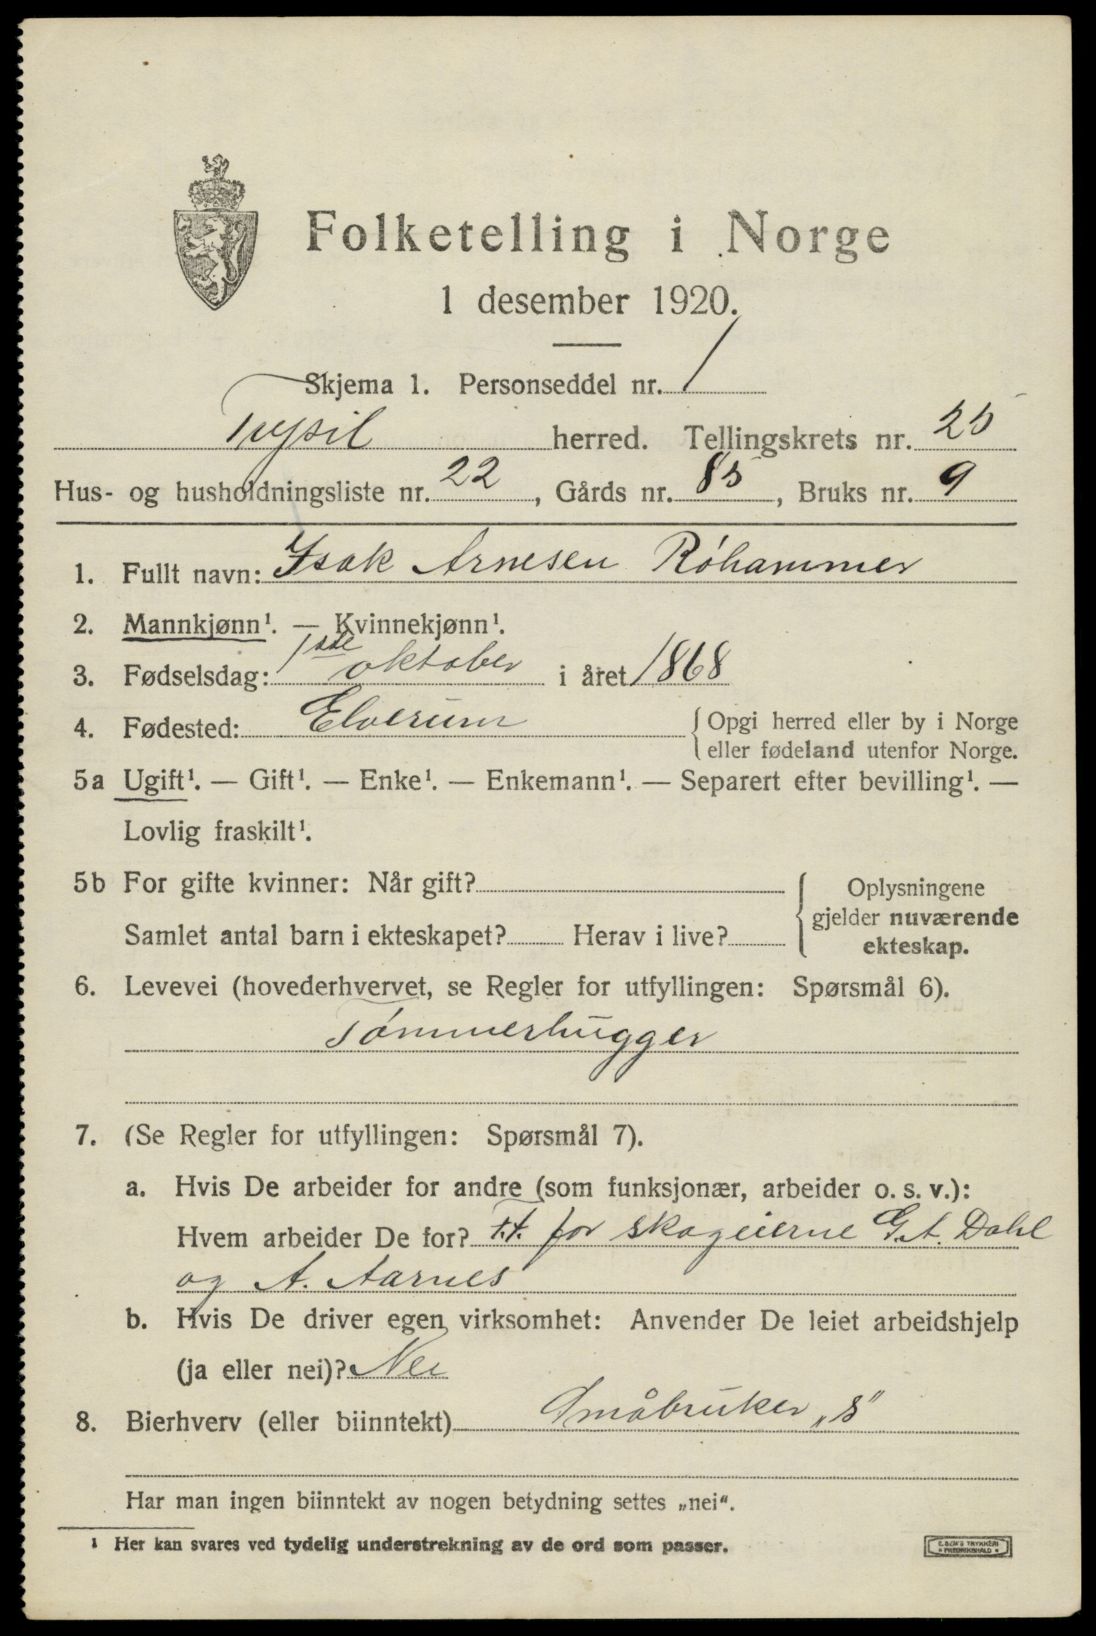 Folketelling i Norge
1 desember 1920.
Skjema 1. Personseddel nr. 1
Trysil herred. Tellingskrets nr. 25
Hus- og husholdningsliste nr. 22, Gårds nr. 85, Bruks nr. 9
1. Fullt navn: Isak Arnesen Röhammer
2. Mannkjønn¹. — Kvinnekjønn¹.
3. Fødselsdag: 1ste oktober i året 1868
4. Fødested: Elverum {Opgi herred eller by i Norge
eller fødeland utenfor Norge.
5a Ugift¹. — Gift¹. — Enke¹. — Enkemann¹. — Separert efter bevilling¹. —
Lovlig fraskilt¹.
5b For gifte kvinner: Når gift?
Samlet antal barn i ekteskapet? Herav i live?
{Oplysningene
gjelder nuværende
ekteskap.
6. Levevei (hovederhvervet, se Regler for utfyllingen: Spørsmål 6).
Tömmerhugger
7. (Se Regler for utfyllingen: Spørsmål 7).
a. Hvis De arbeider for andre (som funksjonær, arbeider o. s. v.):
Hvem arbeider De for? F.t. for skogeierne G.A. Dahl
og A. Aarnes
b. Hvis De driver egen virksomhet: Anvender De leiet arbeidshjelp
(ja eller nei)? Nei
8. Bierhverv (eller biinntekt) Småbruker „s“
Har man ingen biinntekt av nogen betydning settes „nei“.
¹ Her kan svares ved tydelig understrekning av de ord som passer.
E. SEM'S TRYKKERI
* FREDRIKSHALD *